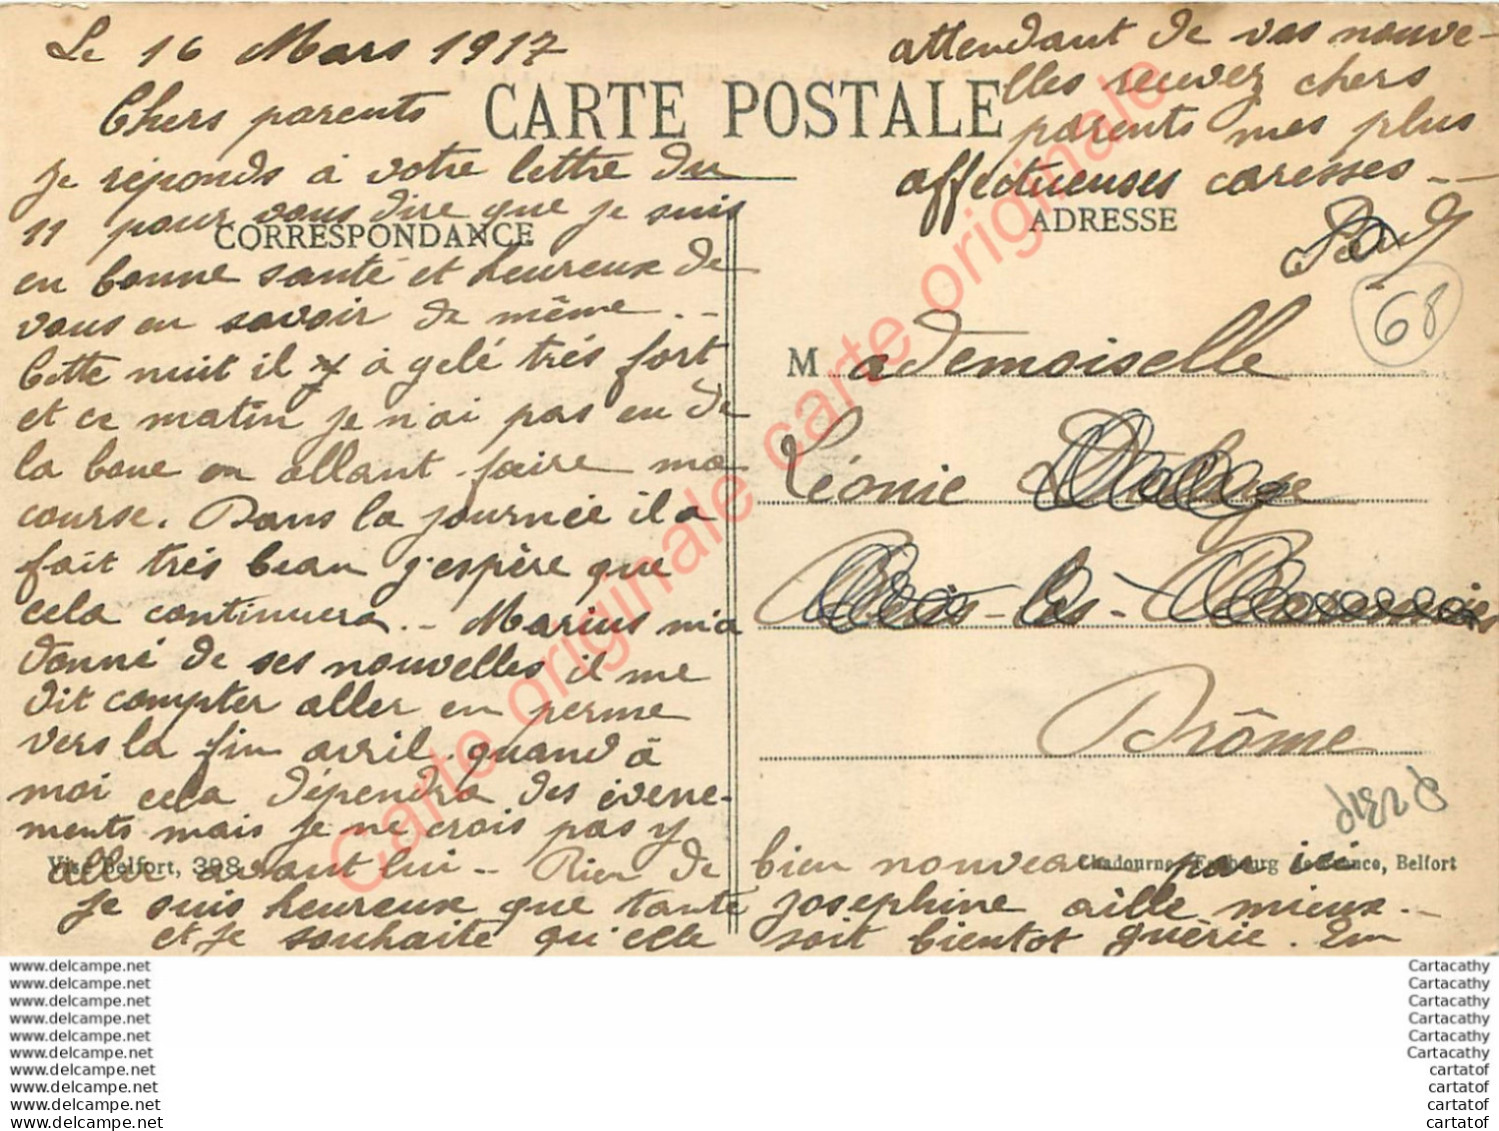 Le 16 Mars 1917
CARTE POSTALE
Chers parents
je réponds à votre lettre du
11 pour vous dire que je suis
CORRESPONDANCE
en bonne santé et heureux de
vous en savoir de même. -
Cette nuit il à gelé trés fort
et ce matin je n'ai pas eu de
la boue en allant faire ma
course. Dans la journée il a
fait trés beau j'espère que
cela continuera. - Marius m'a
donné de ses nouvelles il me
dit compter aller en perme
vers la fin avril quand à
moi cela dépendra des évene-
ments mais je ne crois pas y
aller avant lui - Rien de bien nouveau par ici
Visé Belfort, 398
Chadourne, Faubourg de France, Belfort
je suis heureux que tante Josephine aille mieux. -
et je souhaite qu'elle soit bientot guérie. En
attendant de vos nouve-
lles recevez chers
parents mes plus
affectueuses caresses - -
ADRESSE
Paul
68
Mademoiselle
Léonie
-les-
Drôme
Carte originale carte originale
Carte originale
www.delcampe.net
www.delcampe.net
www.delcampe.net
www.delcampe.net
www.delcampe.net
www.delcampe.net
www.delcampe.net
www.delcampe.net
www.delcampe.net
www.delcampe.net
Cartacathy
Cartacathy
Cartacathy
Cartacathy
Cartacathy
Cartacathy
cartatof
cartatof
cartatof
cartatof